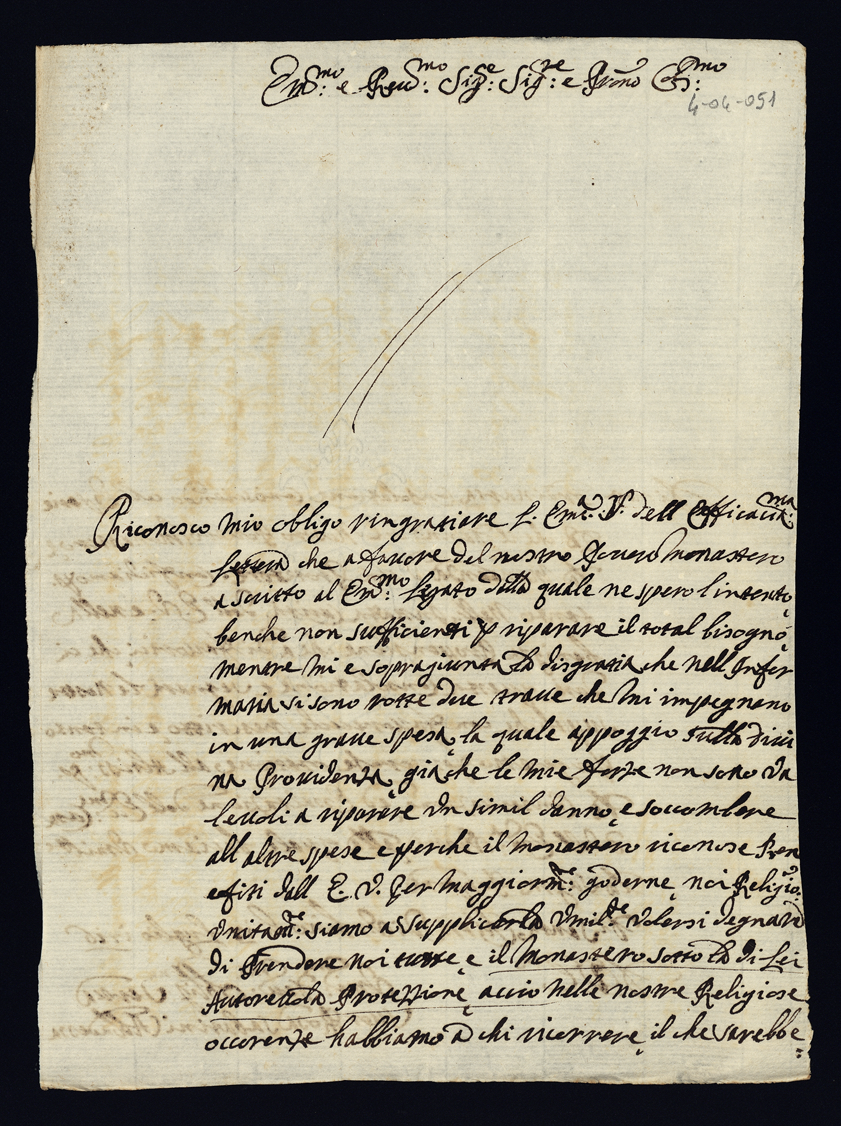 Em.mo e Rev.mo Sig.e Sig.re e Prone Col.mo
4-04-051
Riconosco mio obligo ringratiare l. Em.a V.a dell efficacis.ma
lettera che a favore del nostro Povero Monastero
a scritto al Em.mo legato della quale ne spero l intento,
benche non sufficienti p riparare il total bisogno
mentre mi e sopragiunta la disgratia che nell Infer
maria si sono rotte due trave che mi impegnano
in una grave spesa, la quale appoggio sulla divi
na Providenza, gia che le mie forze non sono va
levoli a riparare un simil danno, e soccombere
all altre spese e perche il Monastero riconose Ben
efiti dall E. V. Per maggiorm.te goderne, noi Religio.e
unitam.te siamo a supplicarla Umil.te volersi degnare
di Prendere noi tutte e il Monastero sotto la di Lei
Autorevola Protezzione, accio nelle nostre Religiose
occorenze habbiamo à chi ricorrere, il che sarebbe